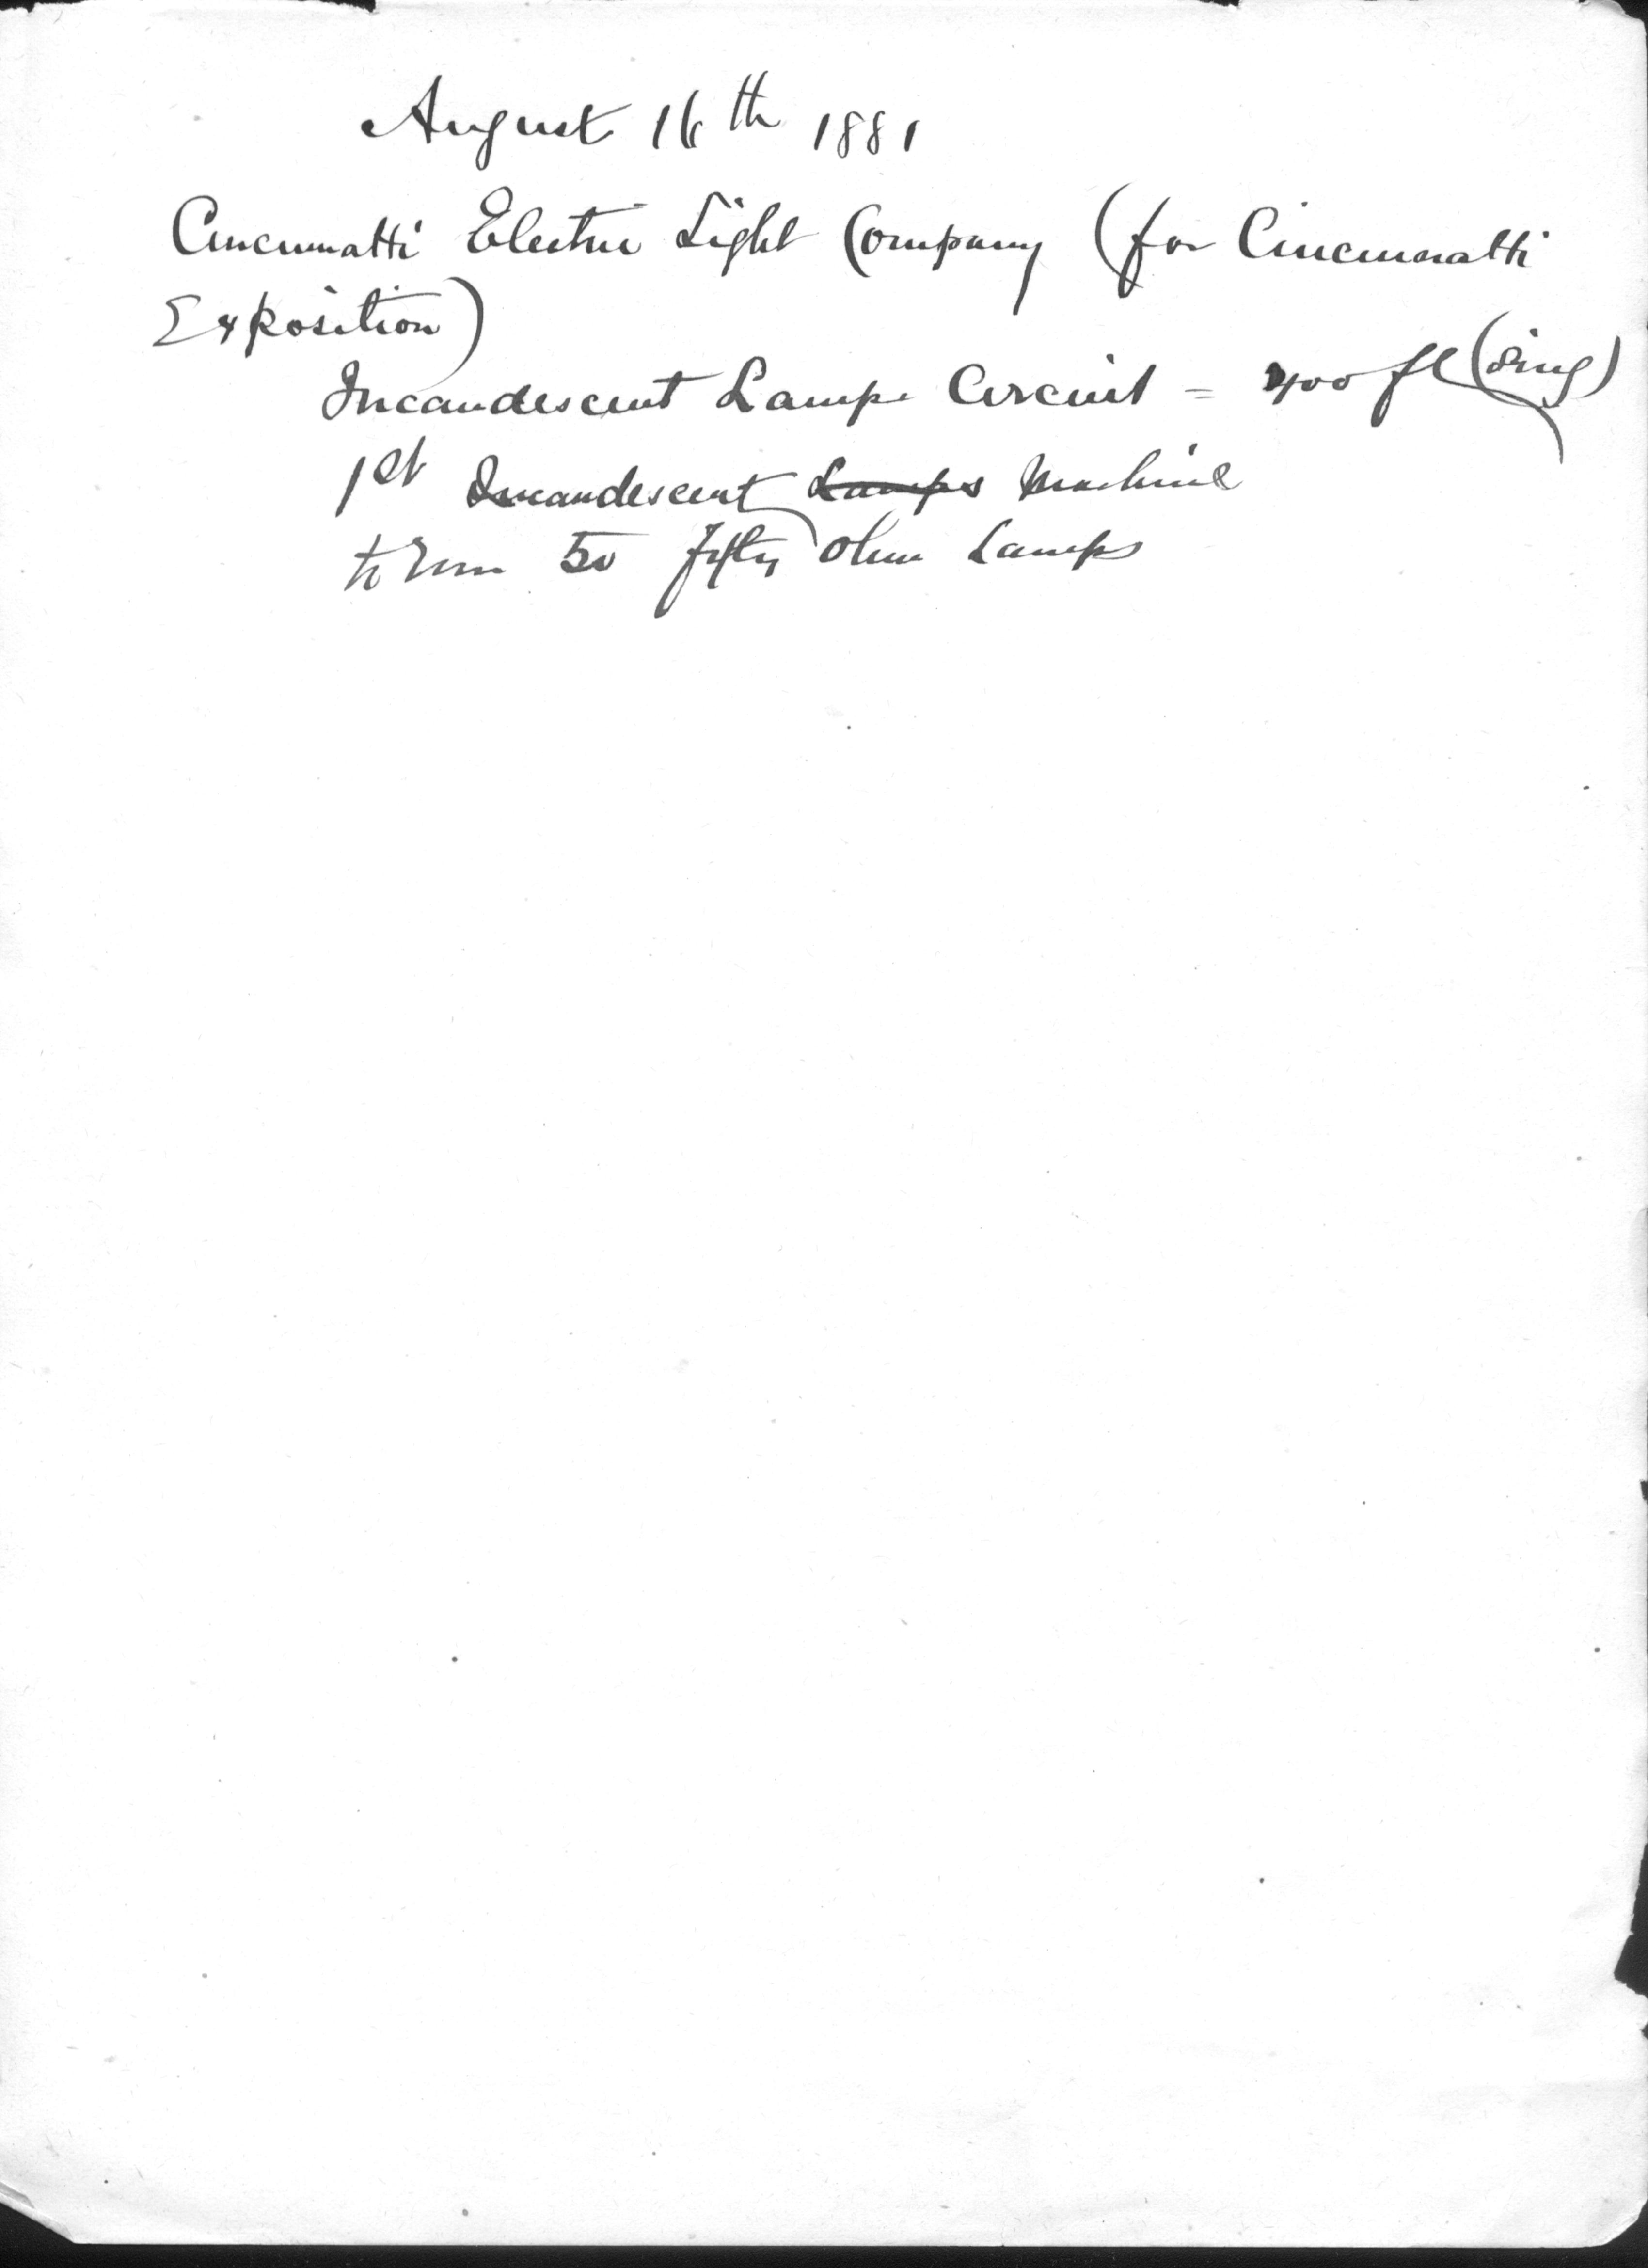 August 16th 1881
Cincinnatti Electric Light Company (for Cincinnatti
Exposition)
Incandescent Lamps Circuit = 400 ft (sing)
1st Incandescent Lamps Machine
to run 50 fifty ohm Lamps